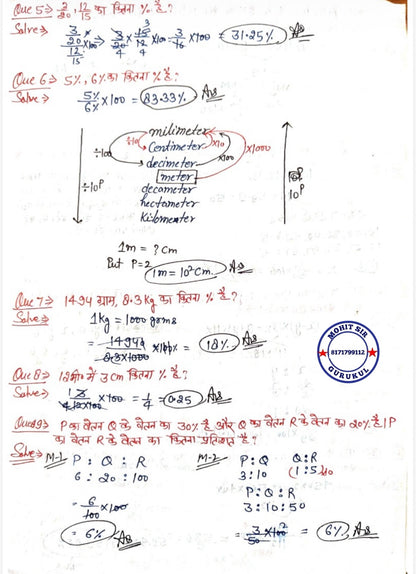 Que 5⇒ 3/20, 12/15 का कितना % है?
Solve⇒ (3/20)/(12/15) ×100 ⇒ 3/20 × 15/12 ×100 = 3/16 ×100 = 31.25% Ans
Que 6⇒ 5%, 6% का कितना % है?
Solve⇒ 5%/6% ×100 = 83.33% Ans
milimeter
Centimeter
decimeter
meter
decameter
hectometer
Kilometer
÷100
÷10
×10
×100
×1000
÷10^P
10^P
1m = ? Cm
Put P=2
1m = 10² Cm Ans
Que 7⇒ 1494 ग्राम, 8.3 kg का कितना % है?
Solve⇒ 1 Kg = 1000 grams
= 1494/(8.3×1000) ×100 = 18% Ans
MOHIT SIR
8171799112
GURUKUL
Que 8⇒ 12 मी० में 3 cm कितना % है?
Solve⇒ 3/(12×100) ×100 = 1/4 = 0.25 Ans
Que 9⇒ P का वेतन Q के वेतन का 30% है और Q का वेतन R के वेतन का 20% है। P
का वेतन R के वेतन का कितना प्रतिशत है?
Solve⇒ M-1 P : Q : R
6 : 20 : 100
= 6/100 ×100
= 6% Ans
M-2 P : Q Q : R
3 : 10 (1 : 5)×10
P : Q : R
3 : 10 : 50
= 3/50 ×100 = 6% Ans